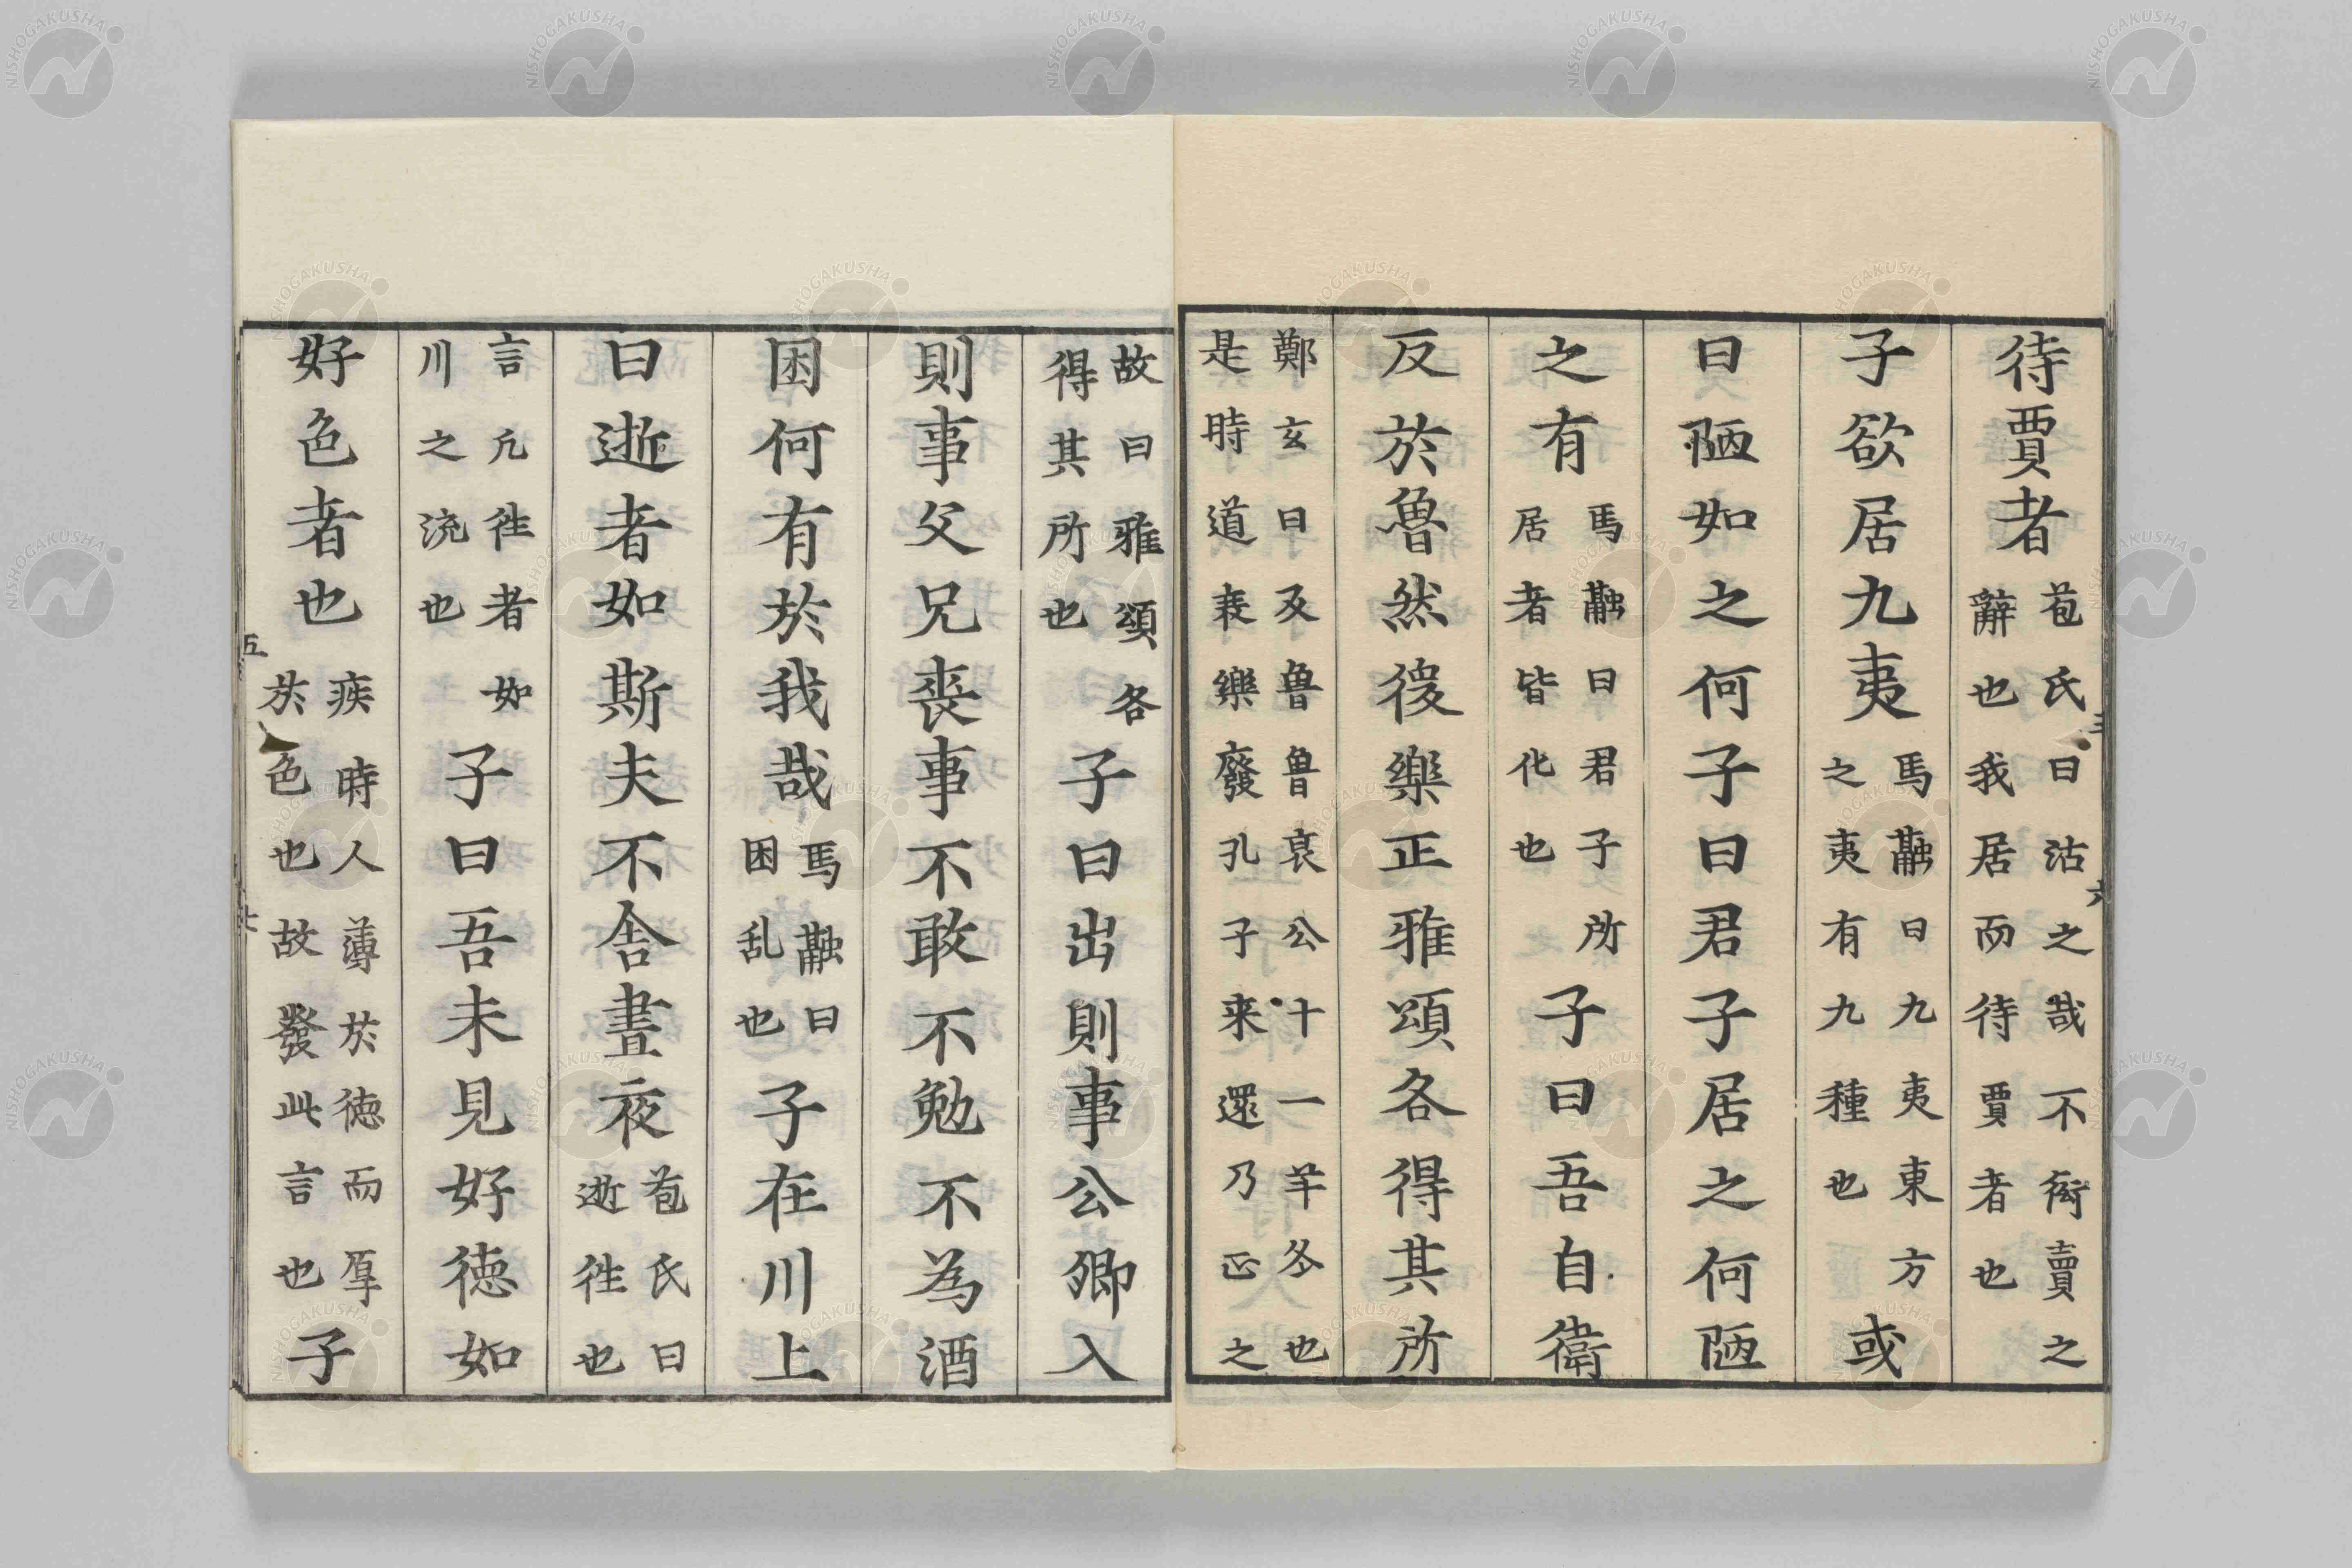 待賈者苞氏曰沽之哉不衒賣之辭也我居而待賈者也
子欲居九夷馬融曰九夷東方之夷有九種也或
曰陋如之何子曰君子居之何陋
之有馬融曰君子所居者皆化也子曰吾自衛
反於魯然後樂正雅頌各得其所
鄭玄曰反魯魯哀公十一年冬也是時道衰樂廢孔子来還乃正之
故曰雅頌各得其所也子曰出則事公卿入
則事父兄喪事不敢不勉不為酒
困何有於我哉馬融曰困乱也子在川上
曰逝者如斯夫不舎晝夜苞氏曰逝往也
言凢往者如川之流也子曰吾未見好徳如
好色者也疾時人薄於徳而厚於色也故發此言也子
NISHOGAKUSHA